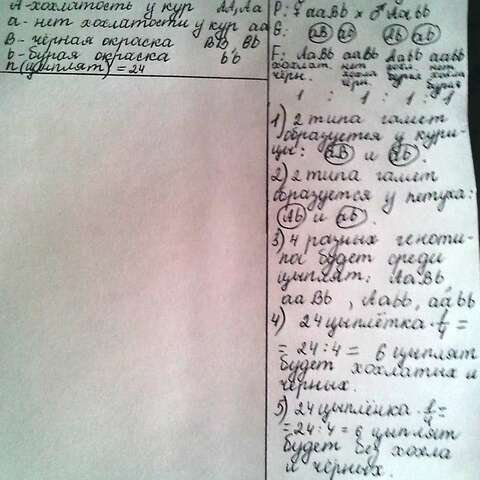 А-хохлатость у кур АА, Аа
а-нет хохлатости у кур аа
В-чёрная окраска ВВ Вb
b-бурая окраска bb
n(цыплят) = 24
P: ♀ aaBb × ♂ Aabb
G: aB ab Ab ab
F: AaBb aaBb Aabb aabb
хохлат. нет хохл. нет
чёрн. хохла бурая хохла
чёрн. бурая
1 : 1 : 1 : 1
1) 2 типа гамет
образуется у кури-
цы: aB и ab.
2) 2 типа гамет
образуется у петуха:
Ab и ab.
3) 4 разных геноти-
па будет среди
цыплят: AaBb
aaBb, Aabb, aabb
4) 24 цыплётка · 1/4 =
= 24 : 4 = 6 цыплят
будет хохлатых и
чёрных.
5) 24 цыплёнка · 1/4 =
= 24 : 4 = 6 цыплят
будет без хохла
и чёрных.